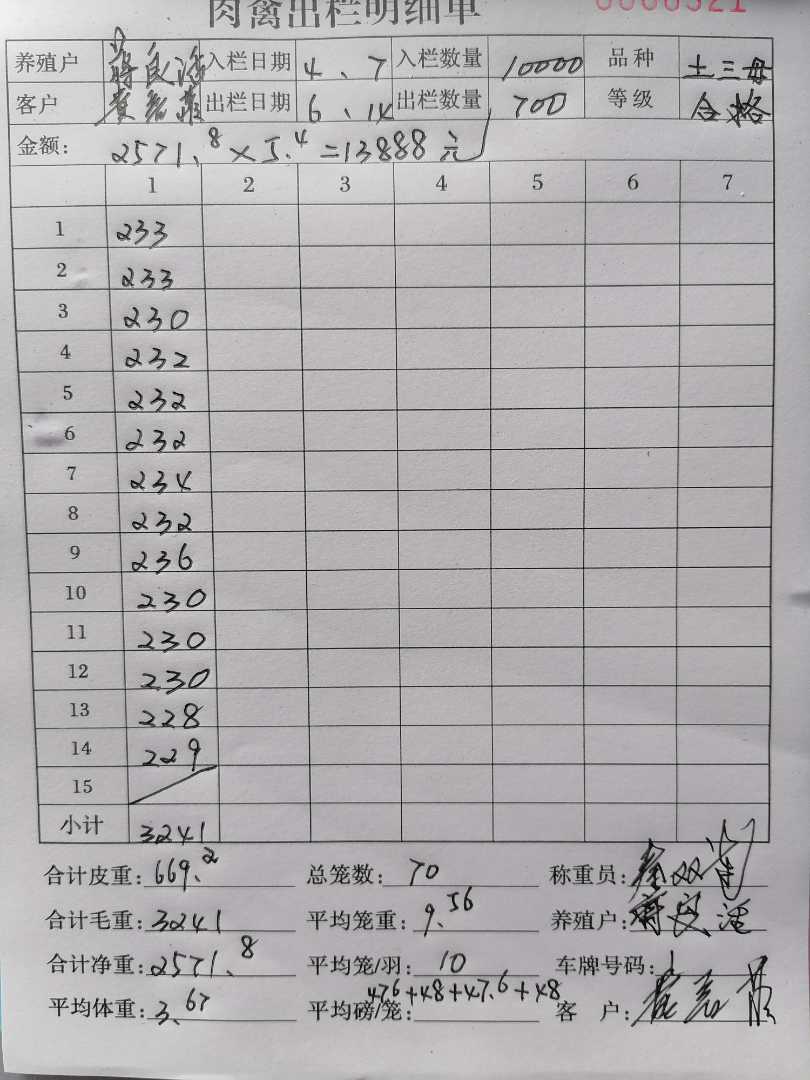 肉禽出栏明细单
养殖户 蒋良活 入栏日期 4、7 入栏数量 10000 品种 土三母
客户 出栏日期 6、14 出栏数量 700 等级 合格
金额: 2571.8×5.4=13888元
1 2 3 4 5 6 7
1 233
2 233
3 230
4 232
5 232
6 232
7 234
8 232
9 236
10 230
11 230
12 230
13 228
14 229
15
小计 3241
合计皮重: 669.2 总笼数: 70 称重员:
合计毛重: 3241 平均笼重: 9.56 养殖户:
合计净重: 2571.8 平均笼/羽: 10 车牌号码:
平均体重: 3.67 平均磅/笼: 47.6+48+47.6+48 客 户: